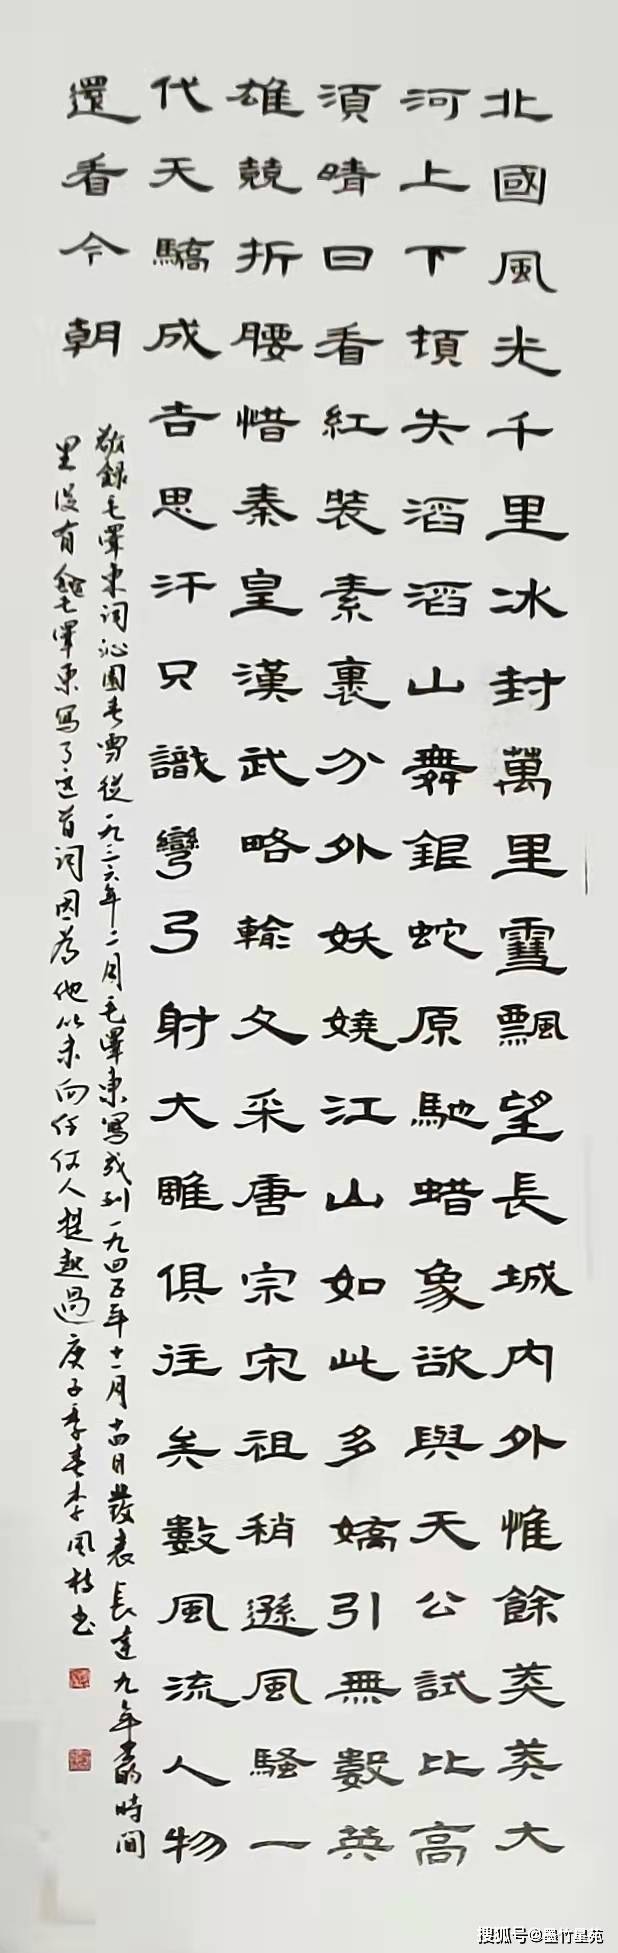 北國風光千里冰封萬里雪飄望長城內外惟餘莽莽大
河上下頓失滔滔山舞銀蛇原馳蜡象欲與天公試比高
須晴日看紅裝素裹分外妖嬈江山如此多嬌引無數英
雄競折腰惜秦皇漢武略輸文采唐宗宋祖稍遜風騷一
代天驕成吉思汗只識彎弓射大雕俱往矣數風流人物
還看今朝
敬録毛澤東詞沁園春雪從一九三六年二月毛澤東寫成到一九四五年十一月十四日發表長達九年多的時間
里沒有毛澤東寫了这首詞因為他从未向任何人提起過庚子季春李風枝書
搜狐号@墨竹星苑